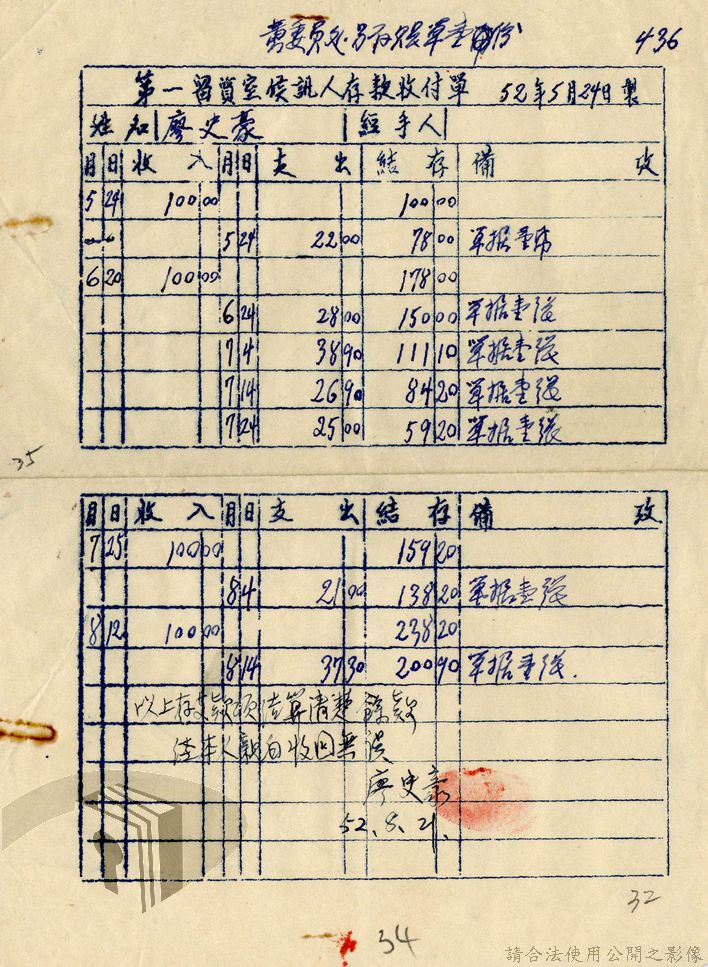 436
第一留質室候訊人存款收付單 52年5月24日製
姓名 廖史豪 經手人
月 日 收入 月 日 支出 結存 備攷
5 24 100 00 100 00
5 24 22 00 78 00 單据壹
6 20 100 00 178 00
6 24 28 00 150 00 單据壹張
7 4 38 90 111 10 單据壹張
7 14 26 90 84 20 單据壹張
7 24 25 00 59 20 單据壹張
35
月 日 收入 月 日 支出 結存 備攷
7 25 100 00 159 20
8 4 21 00 138 20 單据壹張
8 12 100 00 238 20
8 14 37 30 200 90 單据壹張.
以上存款項結算清楚餘款
經本人親自收回無誤
廖史豪
52.8.21.
32
34
請合法使用公開之影像